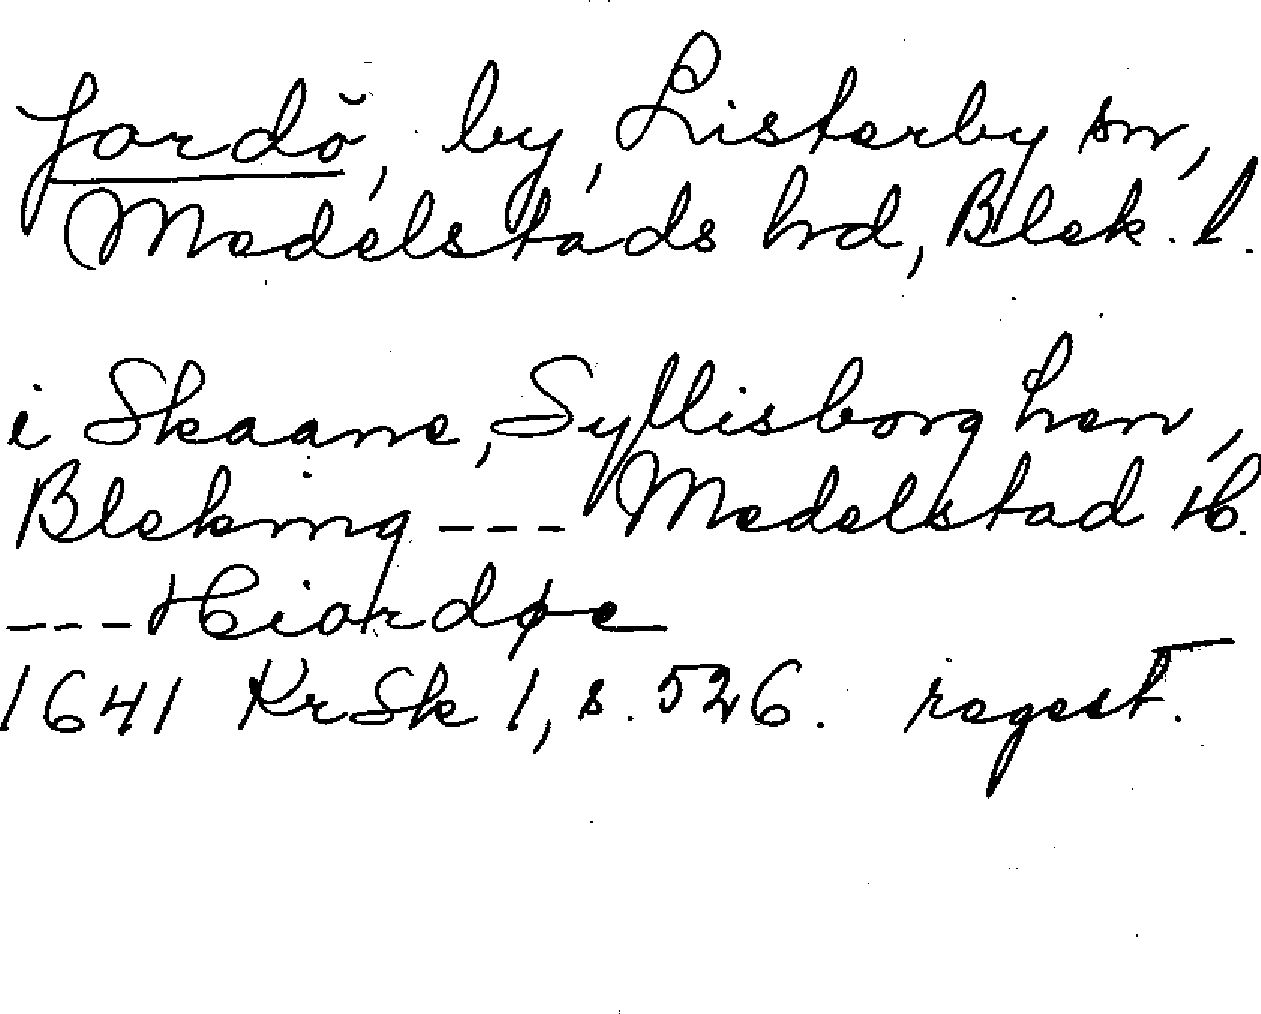 Jordö, by, Listerby sn,
Medelstads hrd, Blek. l.
i Skaane, Syllisborghen,
Bleking --- Medelstad H.
--- Hiordøe
1641 KrSk 1, s. 526. regest.